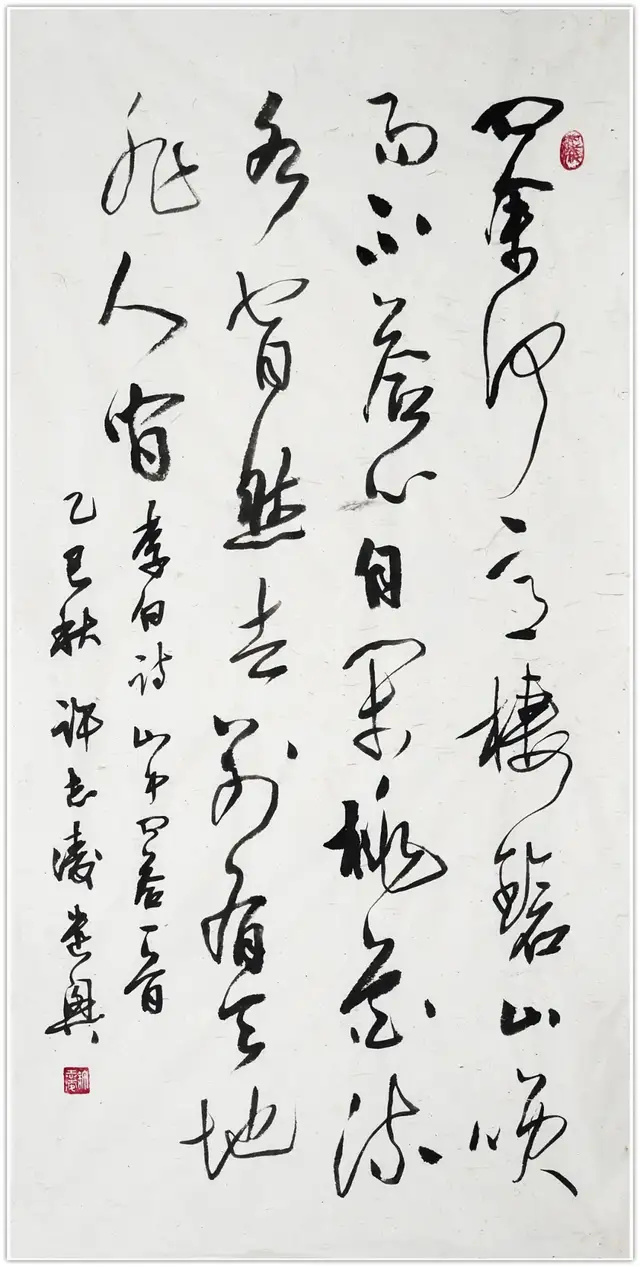 問余何意棲碧山咲
而不答心自閑桃花流
水窅然去別有天地
非人間
李白詩山中問答一首
乙巳秋許志凌遣興